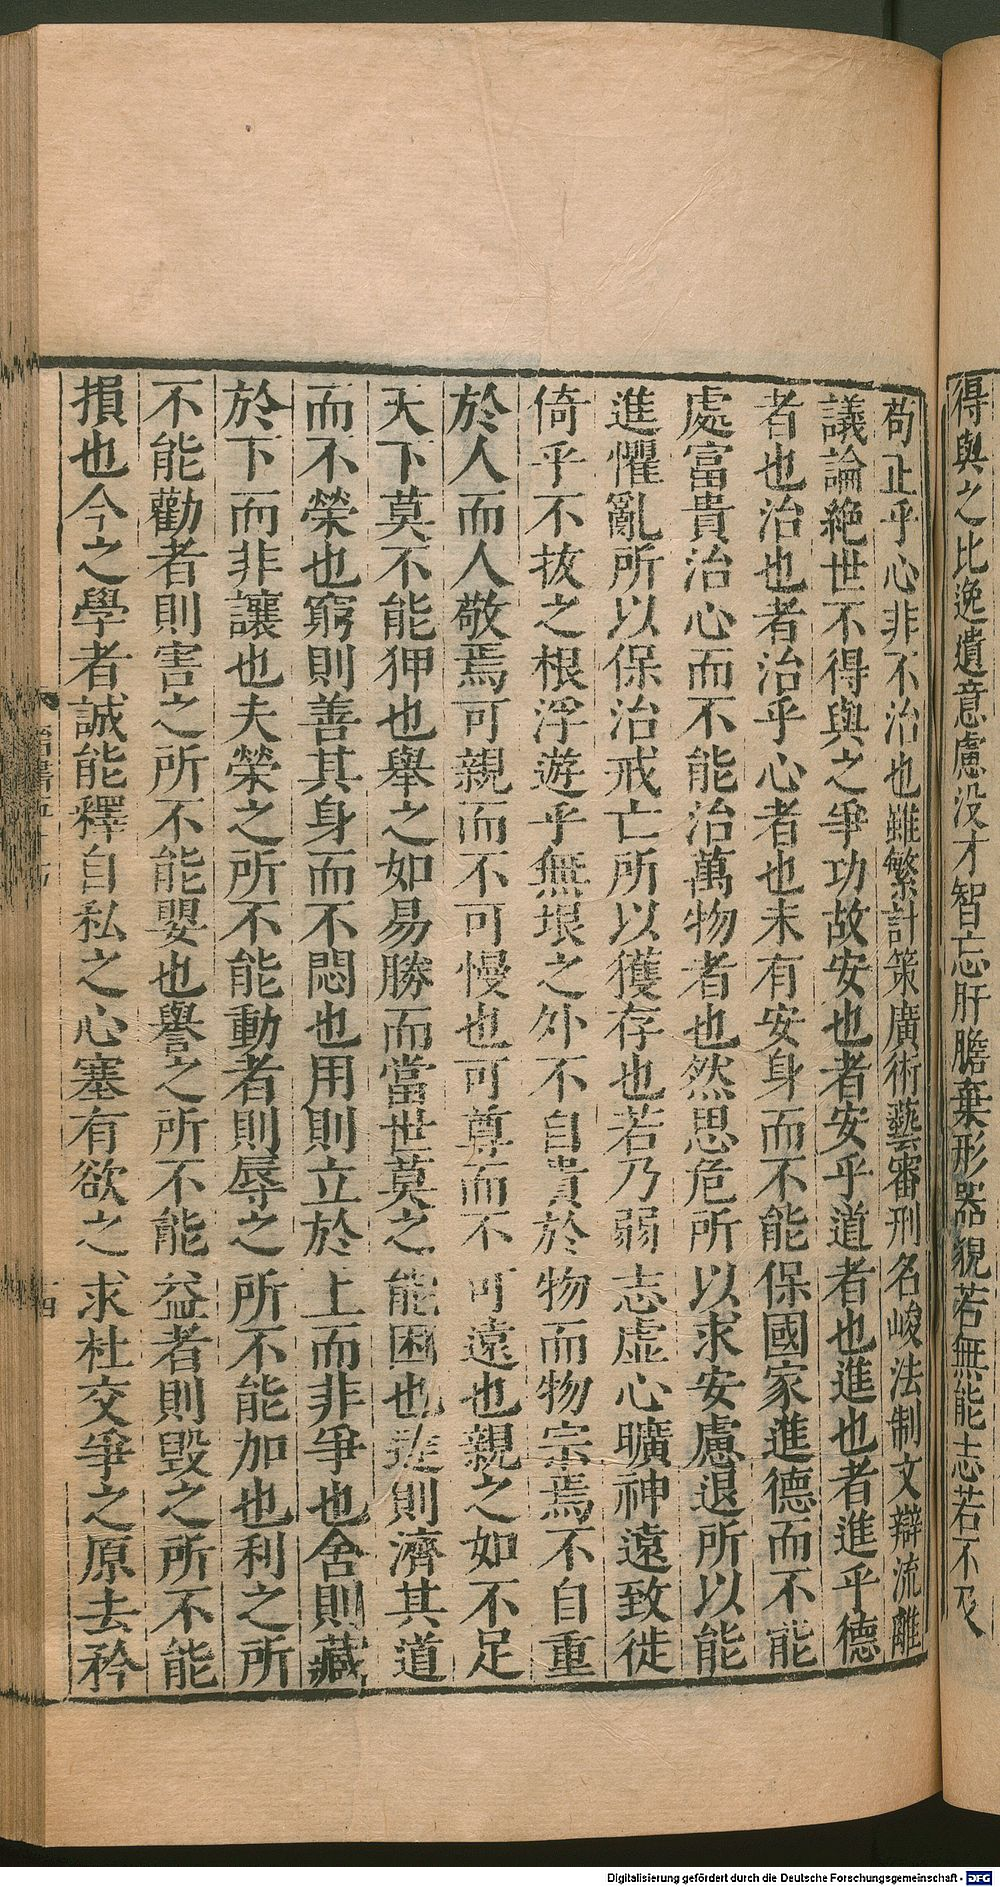 得與之比逸遺意慮没才智忘肝膽棄形器貌若無能志若不及
苟正乎心非不治也雖繁計策廣術藝審刑名峻法制文辯流離
議論絶世不得與之爭功故安也者安乎道者也進也者進乎德
者也治也者治乎心者也未有安身而不能保國家進德而不能
處富貴治心而不能治萬物者也然思危所以求安慮退所以能
進懼亂所以保治戒亡所以獲存也若乃弱志虚心曠神遠致徙
倚乎不拔之根浮遊乎無垠之外不自貴於物而物宗焉不自重
於人而人敬焉可親而不可慢也可尊而不可遠也親之如不足
天下莫不能狎也舉之如易勝而當世莫之能困也逹則濟其道
而不榮也窮則善其身而不悶也用則立於上而非爭也舍則藏
於下而非讓也夫榮之所不能動者則辱之所不能加也利之所
不能勸者則害之所不能嬰也譽之所不能益者則毀之所不能
損也今之學者誠能釋自私之心塞有欲之求杜交爭之原去矜
Digitalisierung gefördert durch die Deutsche Forschungsgemeinschaft - DFG